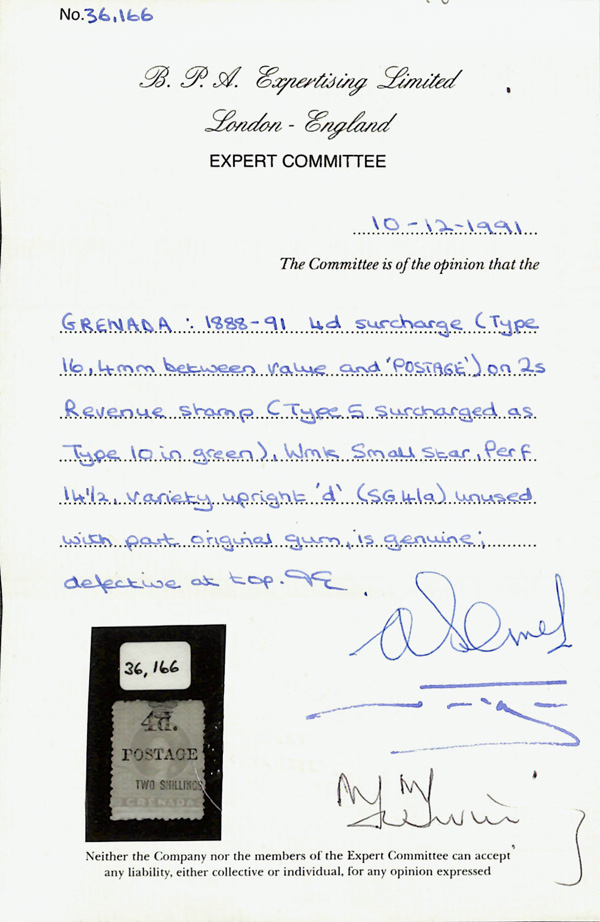 No. 36,166
B. P. A. Expertising Limited
London - England
EXPERT COMMITTEE
10-12-1991
The Committee is of the opinion that the
GRENADA : 1888-91 4d surcharge (Type
16, 4mm between value and 'POSTAGE') on 2s
Revenue stamp (Type 5 surcharged as
Type 10 in green), Wmk Small Star, Perf
14½, variety upright 'd' (SG41a) unused
with part original gum, is genuine;
defective at top.
36,166
4d.
POSTAGE
TWO SHILLINGS
GRENADA
Neither the Company nor the members of the Expert Committee can accept
any liability, either collective or individual, for any opinion expressed